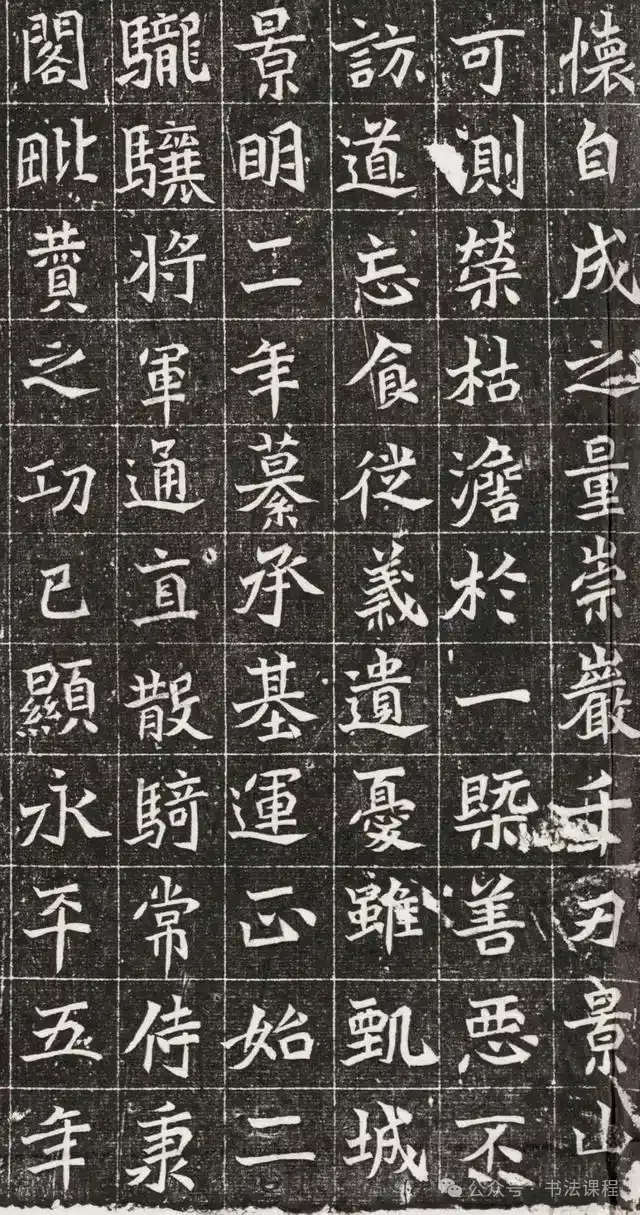 懐自成之量崇巖千刃景山
可測榮枯澹於一槩善惡不
訪道忘食從義遺憂雖甄城
景明二年纂承基運正始二
驡驤將軍通直散騎常侍秉
閣毗賛之功已顯永平五年
公众号·书法课程